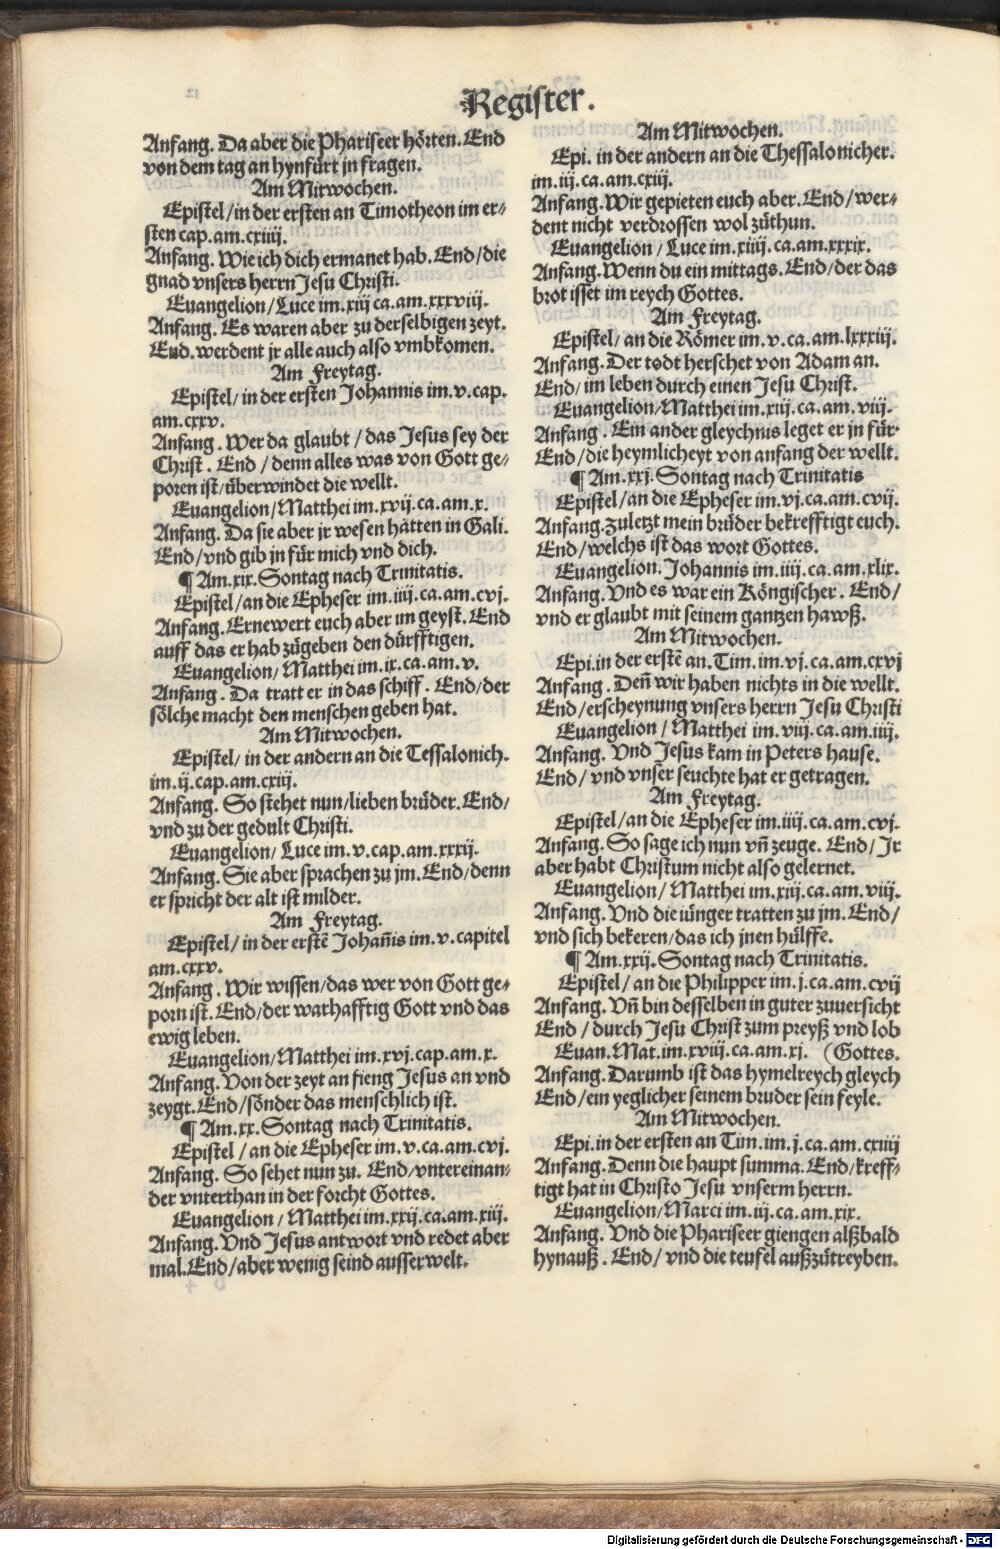 Register.
Anfang. Da aber die Phariseer hörten. End
von dem tag an hynfürt jn fragen.
Am Mitwochen.
Epistel/in der ersten an Timotheon im er⸗
sten cap.am.cxiiij.
Anfang. Wie ich dich ermanet hab. End/die
gnad vnsers herrn Jesu Christi.
Euangelion/Luce im.xiij ca.am.xxxviij.
Anfang. Es waren aber zu derselbigen zeyt.
End.werdent jr alle auch also vmbkomen.
Am Freytag.
Epistel/in der ersten Johannis im.v.cap.
am.cxxv.
Anfang. Wer da glaubt/das Jesus sey der
Christ. End/denn alles was von Gott ge⸗
poren ist/überwindet die wellt.
Euangelion/Matthei im.xvij.ca.am.x.
Anfang. Da sie aber jr wesen hatten in Gali.
End/vnd gib jn für mich vnd dich.
¶ Am.xix.Sontag nach Trinitatis.
Epistel/an die Epheser im.iiij.ca.am.cvj.
Anfang. Ernewert euch aber im geyst. End
auff das er hab zügeben den dürfftigen.
Euangelion/Matthei im.ix.ca.am.v.
Anfang. Da tratt er in das schiff. End/der
sölche macht den menschen geben hat.
Am Mitwochen.
Epistel/in der andern an die Tessalonich.
im.ij.cap.am.cxiij.
Anfang. So stehet nun/lieben brüder. End/
vnd zu der gedult Christi.
Euangelion/Luce im.v.cap.am.xxxij.
Anfang. Sie aber sprachen zu jm. End/denn
er spricht der alt ist milder.
Am Freytag.
Epistel/in der erstē Johan̄is im.v.capitel
am.cxxv.
Anfang. Wir wissen/das wer von Gott ge⸗
porn ist. End/der warhafftig Gott vnd das
ewig leben.
Euangelion/Matthei im.xvj.cap.am.x.
Anfang. Von der zeyt an fieng Jesus an vnd
zeygt. End/sönder das menschlich ist.
¶ Am.xx.Sontag nach Trinitatis.
Epistel/an die Epheser im.v.ca.am.cvj.
Anfang. So sehet nun zu. End/vntereinan⸗
der vnterthan in der forcht Gottes.
Euangelion/Matthei im.xxij.ca.am.xiij.
Anfang. Vnd Jesus antwort vnd redet aber
mal. End/aber wenig seind ausserwelt.
Am Mitwochen.
Epi. in der andern an die Thessalonicher.
im.iij.ca.am.cxiij.
Anfang. Wir gepieten euch aber. End/wer⸗
dent nicht verdrossen wol züthun.
Euangelion/Luce im.xiiij.ca.am.xxxix.
Anfang. Wenn du ein mittags. End/der das
brot isset im reych Gottes.
Am Freytag.
Epistel/an die Römer im.v.ca.am.lxxxiij.
Anfang. Der todt herschet von Adam an.
End/im leben durch einen Jesu Christ.
Euangelion/Matthei im.xiij.ca.am.viij.
Anfang. Ein ander gleychnis leget er jn für.
End/die heymlicheyt von anfang der wellt.
¶ Am.xxj.Sontag nach Trinitatis
Epistel/an die Epheser im.vj.ca.am.cvij.
Anfang.Zuletzt mein brüder bekrefftigt euch.
End/welchs ist das wort Gottes.
Euangelion. Johannis im.iiij.ca.am.xlix.
Anfang. Vnd es war ein Köngischer. End/
vnd er glaubt mit seinem gantzen hawß.
Am Mitwochen.
Epi.in der erstē an.Tim.im.vj.ca.am.cxvj
Anfang. Den̄ wir haben nichts in die wellt.
End/erscheynung vnsers herrn Jesu Christi
Euangelion/Matthei im.viij.ca.am.iiij.
Anfang. Vnd Jesus kam in Peters hause.
End/vnd vnser seuchte hat er getragen.
Am Freytag.
Epistel/an die Epheser im.iiij.ca.am.cvj.
Anfang. So sage ich nun vn̄ zeuge. End/Jr
aber habt Christum nicht also gelernet.
Euangelion/Matthei im.xiij.ca.am.viij.
Anfang. Vnd die iünger tratten zu jm. End/
vnd sich bekeren/das ich jnen hülffe.
¶ Am.xxij.Sontag nach Trinitatis.
Epistel/an die Philipper im.j.ca.am.cvij
Anfang. Vn̄ bin desselben in guter zuuersicht
End/durch Jesu Christ zum preyß vnd lob
Euan.Mat.im.xviij.ca.am.xj. (Gottes.
Anfang. Darumb ist das hymelreych gleych
End/ein yeglicher seinem bruder sein feyle.
Am Mitwochen.
Epi.in der ersten an Tim.im.j.ca.am.cxiiij
Anfang. Denn die haupt summa. End/kreff⸗
tigt hat in Christo Jesu vnserm herrn.
Euangelion/Marci im.iij.ca.am.xix.
Anfang. Vnd die Phariseer giengen alßbald
hynauß. End/vnd die teufel außzütreyben.
Digitalisierung gefördert durch die Deutsche Forschungsgemeinschaft - DFG